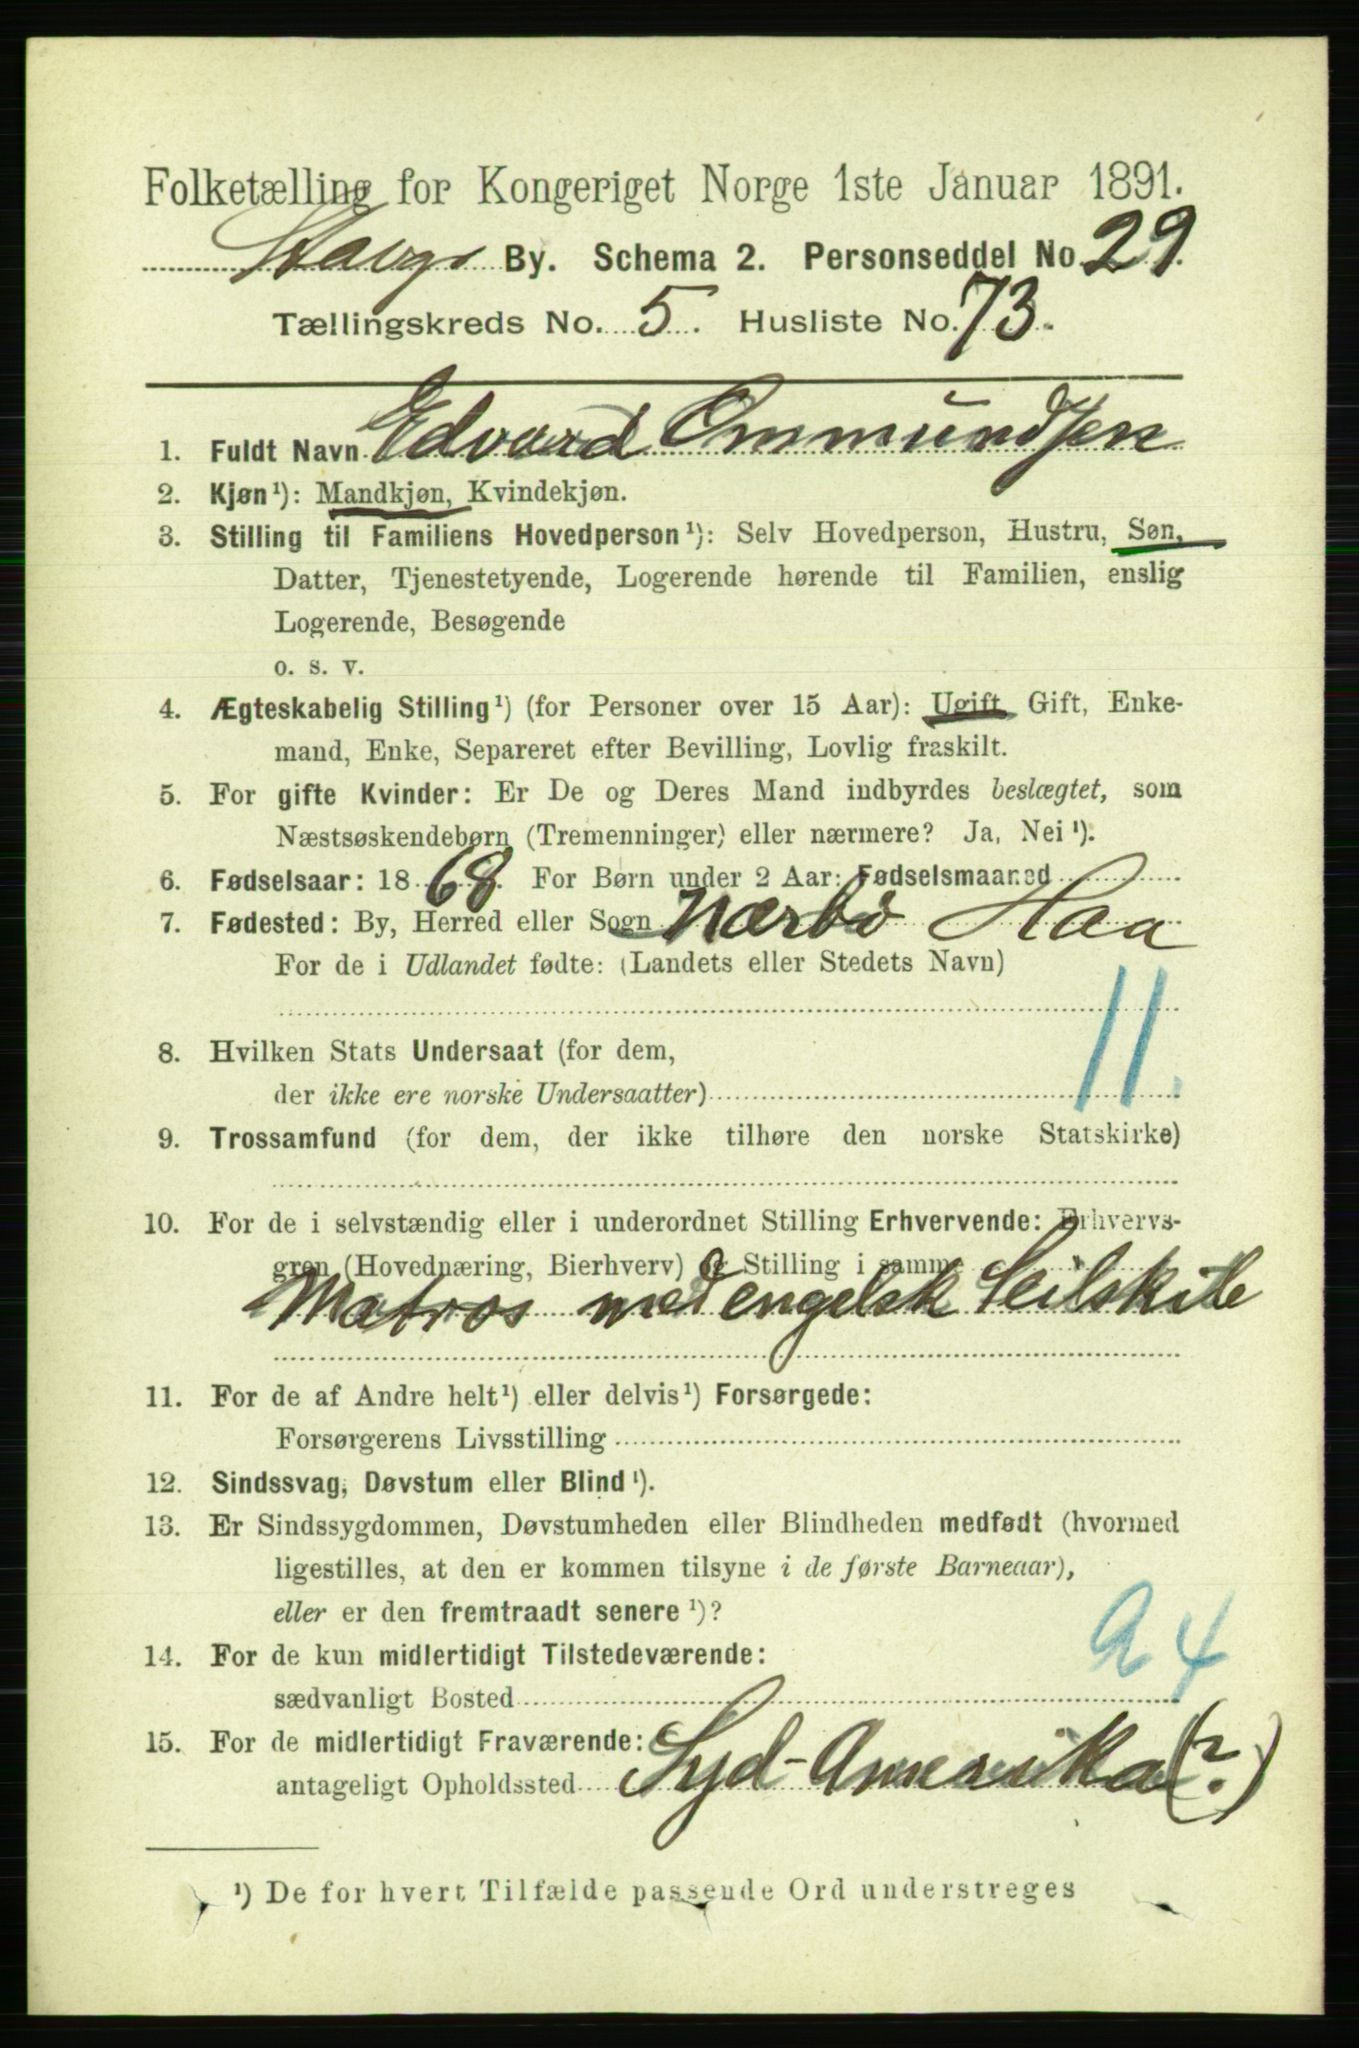 Folketælling for Kongeriget Norge 1ste Januar 1891.
Stavgr By. Schema 2. Personseddel No 29.
Tællingskreds No. 5. Husliste No. 73.
1. Fuldt Navn Edvard Ommundsen
2. Kjøn ¹): Mandkjøn, Kvindekjøn.
3. Stilling til Familiens Hovedperson ¹): Selv Hovedperson, Hustru, Søn,
Datter, Tjenestetyende, Logerende hørende til Familien, enslig
Logerende, Besøgende
o. s. v.
4. Ægteskabelig Stilling ¹) (for Personer over 15 Aar): Ugift, Gift, Enke-
mand, Enke, Separeret efter Bevilling, Lovlig fraskilt.
5. For gifte Kvinder: Er De og Deres Mand indbyrdes beslægtet, som
Næstsøskendebørn (Tremenninger) eller nærmere? Ja, Nei ¹).
6. Fødselsaar: 18 68. For Børn under 2 Aar: Fødselsmaaned
7. Fødested: By, Herred eller Sogn Nærbø Haa
For de i Udlandet fødte: (Landets eller Stedets Navn)
11.
8. Hvilken Stats Undersaat (for dem,
der ikke ere norske Undersaatter)
9. Trossamfund (for dem, der ikke tilhøre den norske Statskirke)
10. For de i selvstændig eller i underordnet Stilling Erhvervende: Erhvervs-
gren (Hovednæring, Bierhverv) og Stilling i samme
Matros med engelsk Seilskibe
11. For de af Andre helt ¹) eller delvis ¹) Forsørgede:
Forsørgerens Livsstilling
12. Sindssvag, Døvstum eller Blind ¹).
13. Er Sindssygdommen, Døvstumheden eller Blindheden medfødt (hvormed
ligestilles, at den er kommen tilsyne i de første Barneaar),
eller er den fremtraadt senere ¹)?
a 4
14. For de kun midlertidigt Tilstedeværende:
sædvanligt Bosted
15. For de midlertidigt Fraværende:
antageligt Opholdssted Syd-Amerika (?)
¹) De for hvert Tilfælde passende Ord understreges